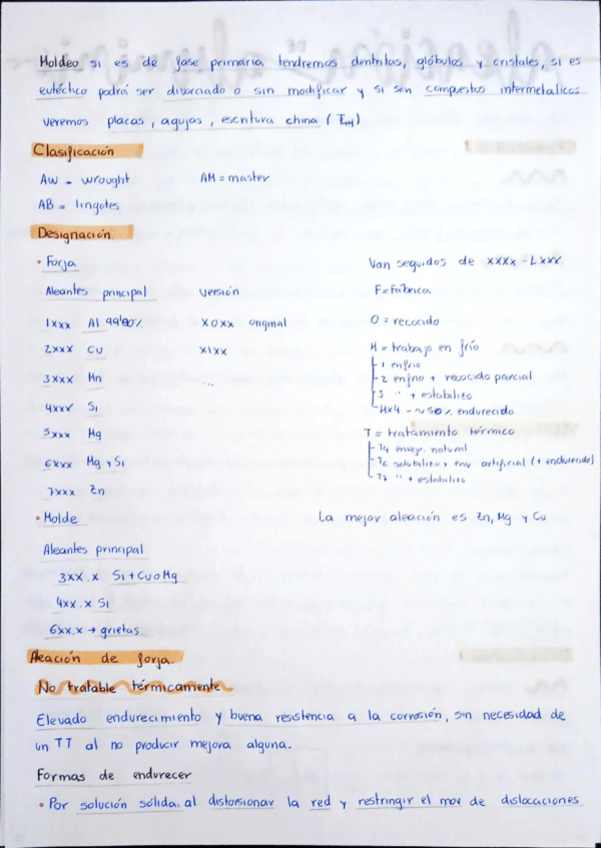 Moldeo si es de fase primaria tendremos dentritas, glóbulos y cristales, si es
eutéctico podrá ser divorciado o sin modificar y si son compuestos intermetalicos
veremos placas, agujas, escritura china
Clasificación
AW = wrought AM = master
AB = lingotes
Designación.
• Forja Van seguidos de xxxx - Lxxx
Aleantes principal versión F = Fábrica
1xxx Al 99'00% x0xx original O = recocido
2xxx Cu x1xx H = trabajo en frío
1 enfrío
3xxx Mn ... 2 enfrio + recocido parcial
3 " + estabilizo
4xxx Si Hx4 - ~50% endurecido
5xxx Mg T = tratamiento térmico
T4 envej. natural
6xxx Mg y Si T6 solubilizo + env. artificial (+ endurecido)
T7 " + estabilizo
7xxx Zn
• Molde La mejor aleación es Zn, Mg y Cu
Aleantes principal
3xx.x Si + Cu o Mg
4xx.x Si
6xx.x → grietas
Aleación de forja.
No tratable térmicamente
Elevado endurecimiento y buena resistencia a la corrosión, sin necesidad de
un TT al no producir mejora alguna.
Formas de endurecer
• Por solución sólida: al distorsionar la red y restringir el mov de dislocaciones